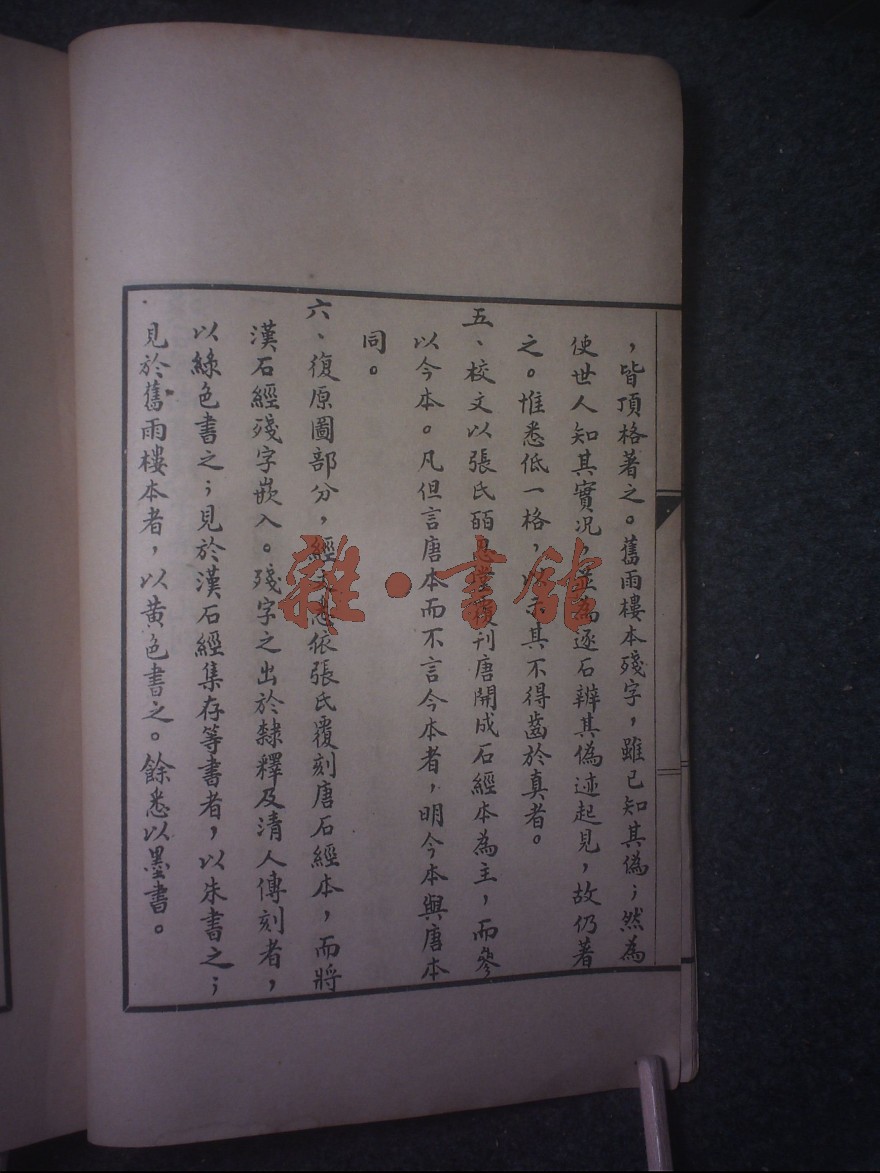 ，皆頂格著之。舊雨樓本殘字，雖已知其偽；然為
使世人知其實况，並為逐石辨其偽迹起見，故仍著
之。惟悉低一格，以示其不得齒於真者。
五、校文以張氏皕忍堂覆刊唐開成石經本為主，而參
以今本。凡但言唐本而不言今本者，明今本與唐本
同。
六、復原圖部分，經文悉依張氏覆刻唐石經本，而將
漢石經殘字嵌入。殘字之出於隸釋及清人傳刻者，
以綠色書之；見於漢石經集存等書者，以朱書之；
見於舊雨樓本者，以黄色書之。餘悉以墨書。
雜·書館